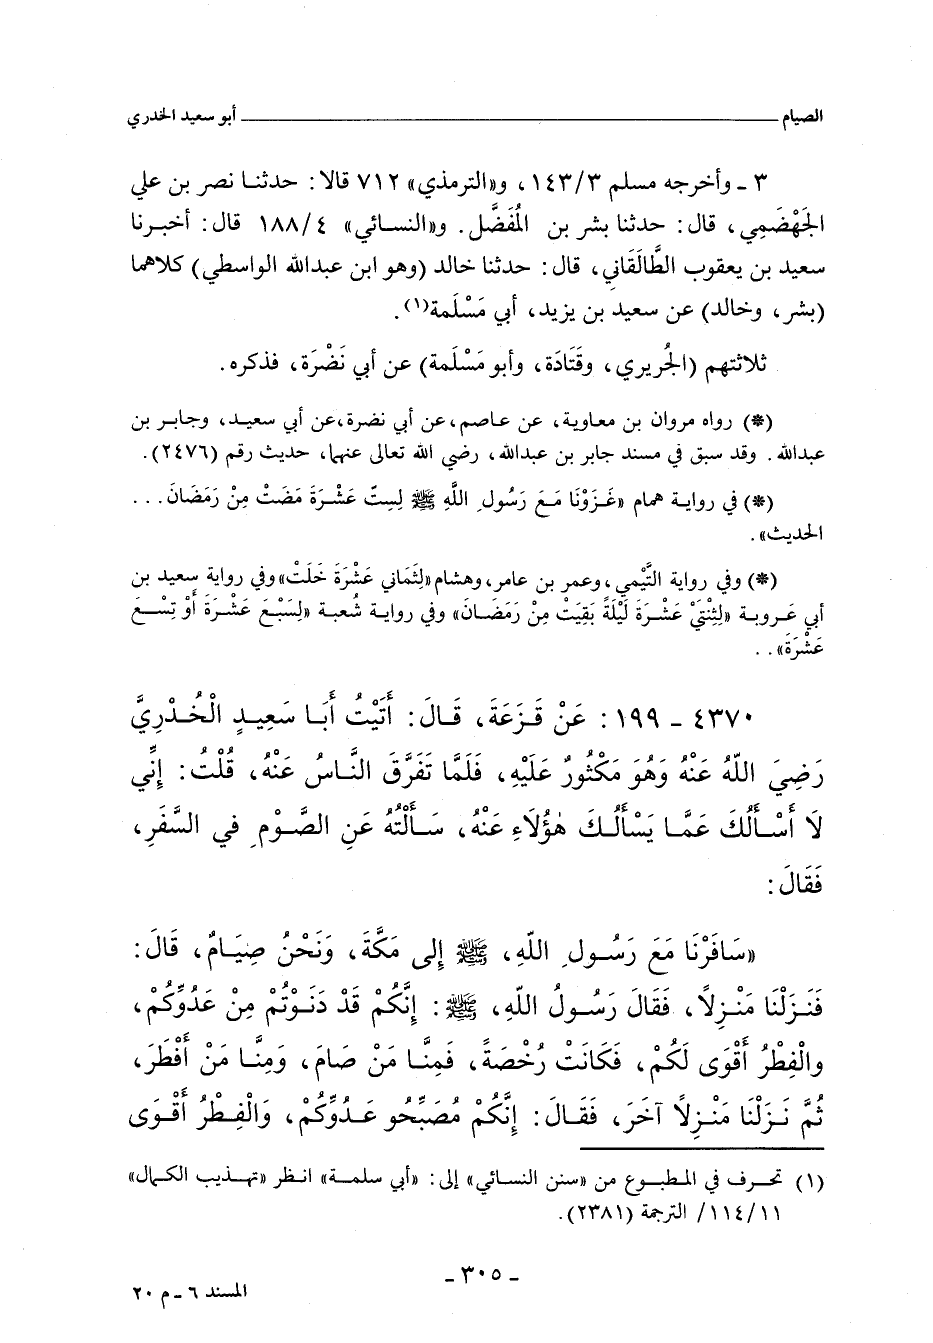 الصيام ـــــــــــــــــــــــــــــــــــــــــــــــــ أبو سعيد الخدري
٣ ـ وأخرجه مسلم ١٤٣/٣، و«الترمذي» ٧١٢ قالا: حدثنا نصر بن علي
الجَهْضَمِي، قال: حدثنا بشر بن المُفَضَّل. و«النسائي» ١٨٨/٤ قال: أخبرنا
سعيد بن يعقوب الطَّالَقَاني، قال: حدثنا خالد (وهو ابن عبدالله الواسطي) كلاهما
(بشر، وخالد) عن سعيد بن يزيد، أبي مَسْلَمة(١).
ثلاثتهم (الجُريري، وقَتَادَة، وأبو مَسْلَمة) عن أبي نَضْرَة، فذكره.
(*) رواه مروان بن معاوية، عن عاصم، عن أبي نضرة، عن أبي سعيد، وجابر بن
عبدالله. وقد سبق في مسند جابر بن عبدالله، رضي الله تعالى عنهما، حديث رقم (٢٤٧٦).
(*) في رواية همام «غَزَوْنَا مَعَ رَسُولِ اللَّهِ ﷺ لِسِتّ عَشْرَةَ مَضَتْ مِنْ رَمَضَانَ...
الحديث».
(*) وفي رواية التَّيْمي، وعمر بن عامر، وهشام «لِثَمَاني عَشْرَةَ خَلَتْ» وفي رواية سعيد بن
أبي عَروبة «لِثِنْتَيْ عَشْرَةَ لَيْلَةً بَقِيَتْ مِنْ رَمَضَانَ» وفي رواية شُعبة «لِسَبْعَ عَشْرَةَ أَوْ تِسْعَ
عَشْرَةَ»..
٤٣٧٠ ـ ١٩٩: عَنْ قَزَعَةَ، قَالَ: أَتَيْتُ أَبَا سَعِيدٍ الْخُدْرِيَّ
رَضِيَ اللّهُ عَنْهُ وَهُوَ مَكْثُورٌ عَلَيْهِ، فَلَمَّا تَفَرَّقَ النَّاسُ عَنْهُ، قُلْتُ: إِنِّي
لَا أَسْأَلُكَ عَمَّا يَسْأَلُكَ هٰؤُلَاءِ عَنْهُ، سَأَلْتُهُ عَنِ الصَّوْمِ فِي السَّفَرِ،
فَقَالَ:
«سَافَرْنَا مَعَ رَسُولِ اللّهِ، ﷺ إِلى مَكَّةَ، وَنَحْنُ صِيَامٌ، قَالَ:
فَنَزَلْنَا مَنْزِلاً، فَقَالَ رَسُولُ اللّهِ، ﷺ: إِنَّكُمْ قَدْ دَنَوْتُمْ مِنْ عَدُوِّكُمْ،
والْفِطْرُ أَقْوَى لَكُمْ، فَكَانَتْ رُخْصَةً، فَمِنَّا مَنْ صَامَ، وَمِنَّا مَنْ أَفْطَرَ،
ثُمَّ نَزَلْنَا مَنْزِلاً آخَرَ، فَقَالَ: إِنَّكُمْ مُصَبِّحُو عَدُوِّكُمْ، وَالْفِطْرُ أَقْوَى
(١) تحرف في المطبوع من «سنن النسائي» إلى: «أبي سلمة» انظر «تهذيب الكمال»
١١٤/١١/ الترجمة (٢٣٨١).
ـ ٣٠٥ ـ
المسند ٦ ـ م ٢٠